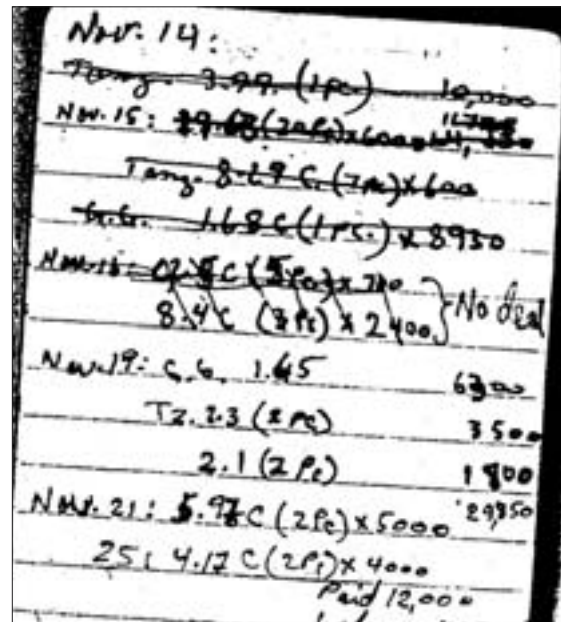 Nov. 14:
Tanz. 3.99. (1pc.) 10,000
Nov. 15: (20Pc) x 600
Tanz. 8.29 C. (7pc) x 600
G.G. 1.68 C (1 PC.) x 8950
Nov. 16: C (5Pc) x 700
8.4 C (3Pc) x 2400 } No deal
Nov. 19: G.G. 1.65 6300
Tz. 2.3 (2 Pc) 3500
2.1 (2 Pc) 1800
Nov. 21: 5.97 C (2Pc) x 5000 29,850
25: 4.17 C (2Pc) x 4000
Paid 12,000